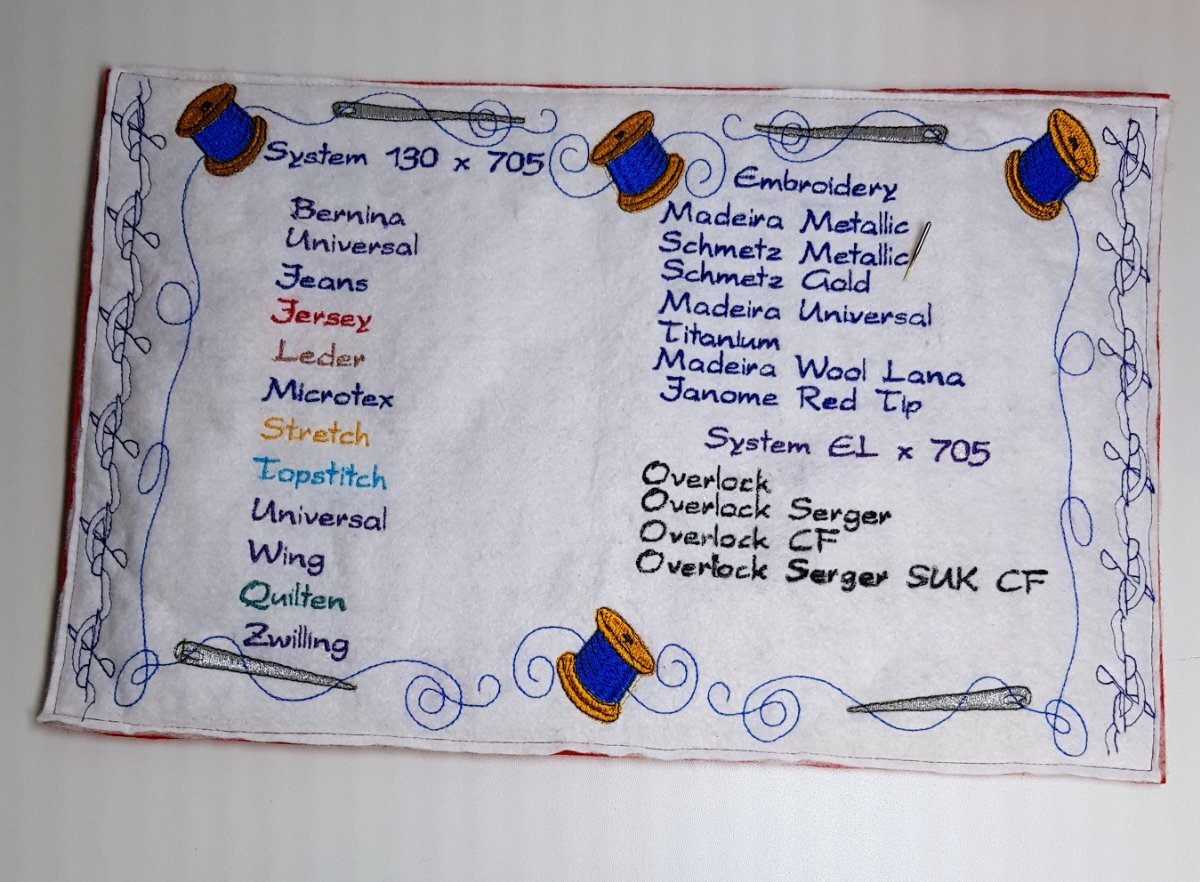 System 130 x 705
Bernina
Universal
Jeans
Jersey
Leder
Microtex
Stretch
Topstitch
Universal
Wing
Quilten
Zwilling
Embroidery
Madeira Metallic
Schmetz Metallic
Schmetz Gold
Madeira Universal
Titanium
Madeira Wool Lana
Janome Red Tip
System EL x 705
Overlock
Overlock Serger
Overlock CF
Overlock Serger SUK CF